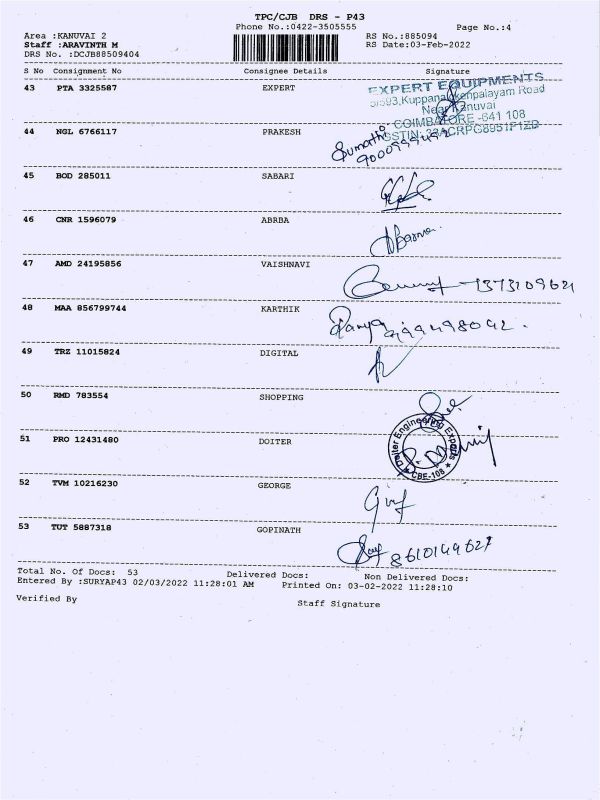 TPC/CJB DRS - P43
Phone No.:0422-3505555 Page No.:4
Area :KANUVAI 2 RS No.:885094
Staff :ARAVINTH M RS Date:03-Feb-2022
DRS No. :DCJB88509404
S No Consignment No Consignee Details Signature
43 PTA 3325587 EXPERT
EXPERT EQUIPMENTS
Road
Near Kanuvai
COIMBATORE -641 108
44 NGL 6766117 PRAKESH
Sumathi
45 BOD 285011 SABARI
46 CNR 1596079 ABRBA
47 AMD 24195856 VAISHNAVI
7373109621
48 MAA 856799744 KARTHIK
49 TRZ 11015824 DIGITAL
50 RMD 783554 SHOPPING
51 PRO 12431480 DOITER
Doiter Engineering Exports
CBE-108
52 TVM 10216230 GEORGE
53 TUT 5887318 GOPINATH
8610149627
Total No. Of Docs: 53 Delivered Docs: Non Delivered Docs:
Entered By :SURYAP43 02/03/2022 11:28:01 AM Printed On: 03-02-2022 11:28:10
Verified By Staff Signature